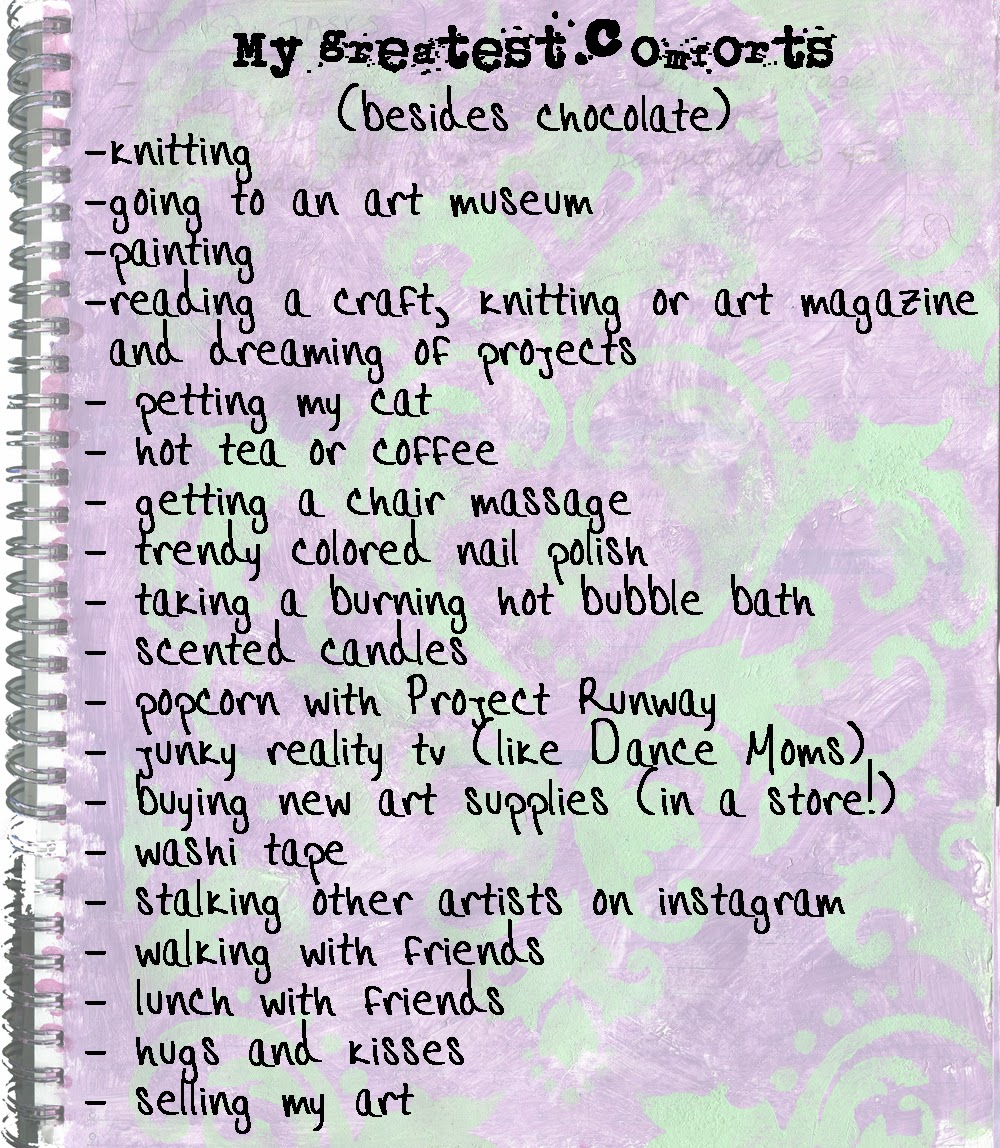 My greatest Comforts
(besides chocolate)
-knitting
-going to an art museum
-painting
-reading a craft, knitting or art magazine
and dreaming of projects
- petting my cat
- hot tea or coffee
- getting a chair massage
- trendy colored nail polish
- taking a burning hot bubble bath
- scented candles
- popcorn with Project Runway
- junky reality tv (like Dance Moms)
- buying new art supplies (in a store!)
- washi tape
- stalking other artists on instagram
- walking with friends
- lunch with friends
- hugs and kisses
- selling my art